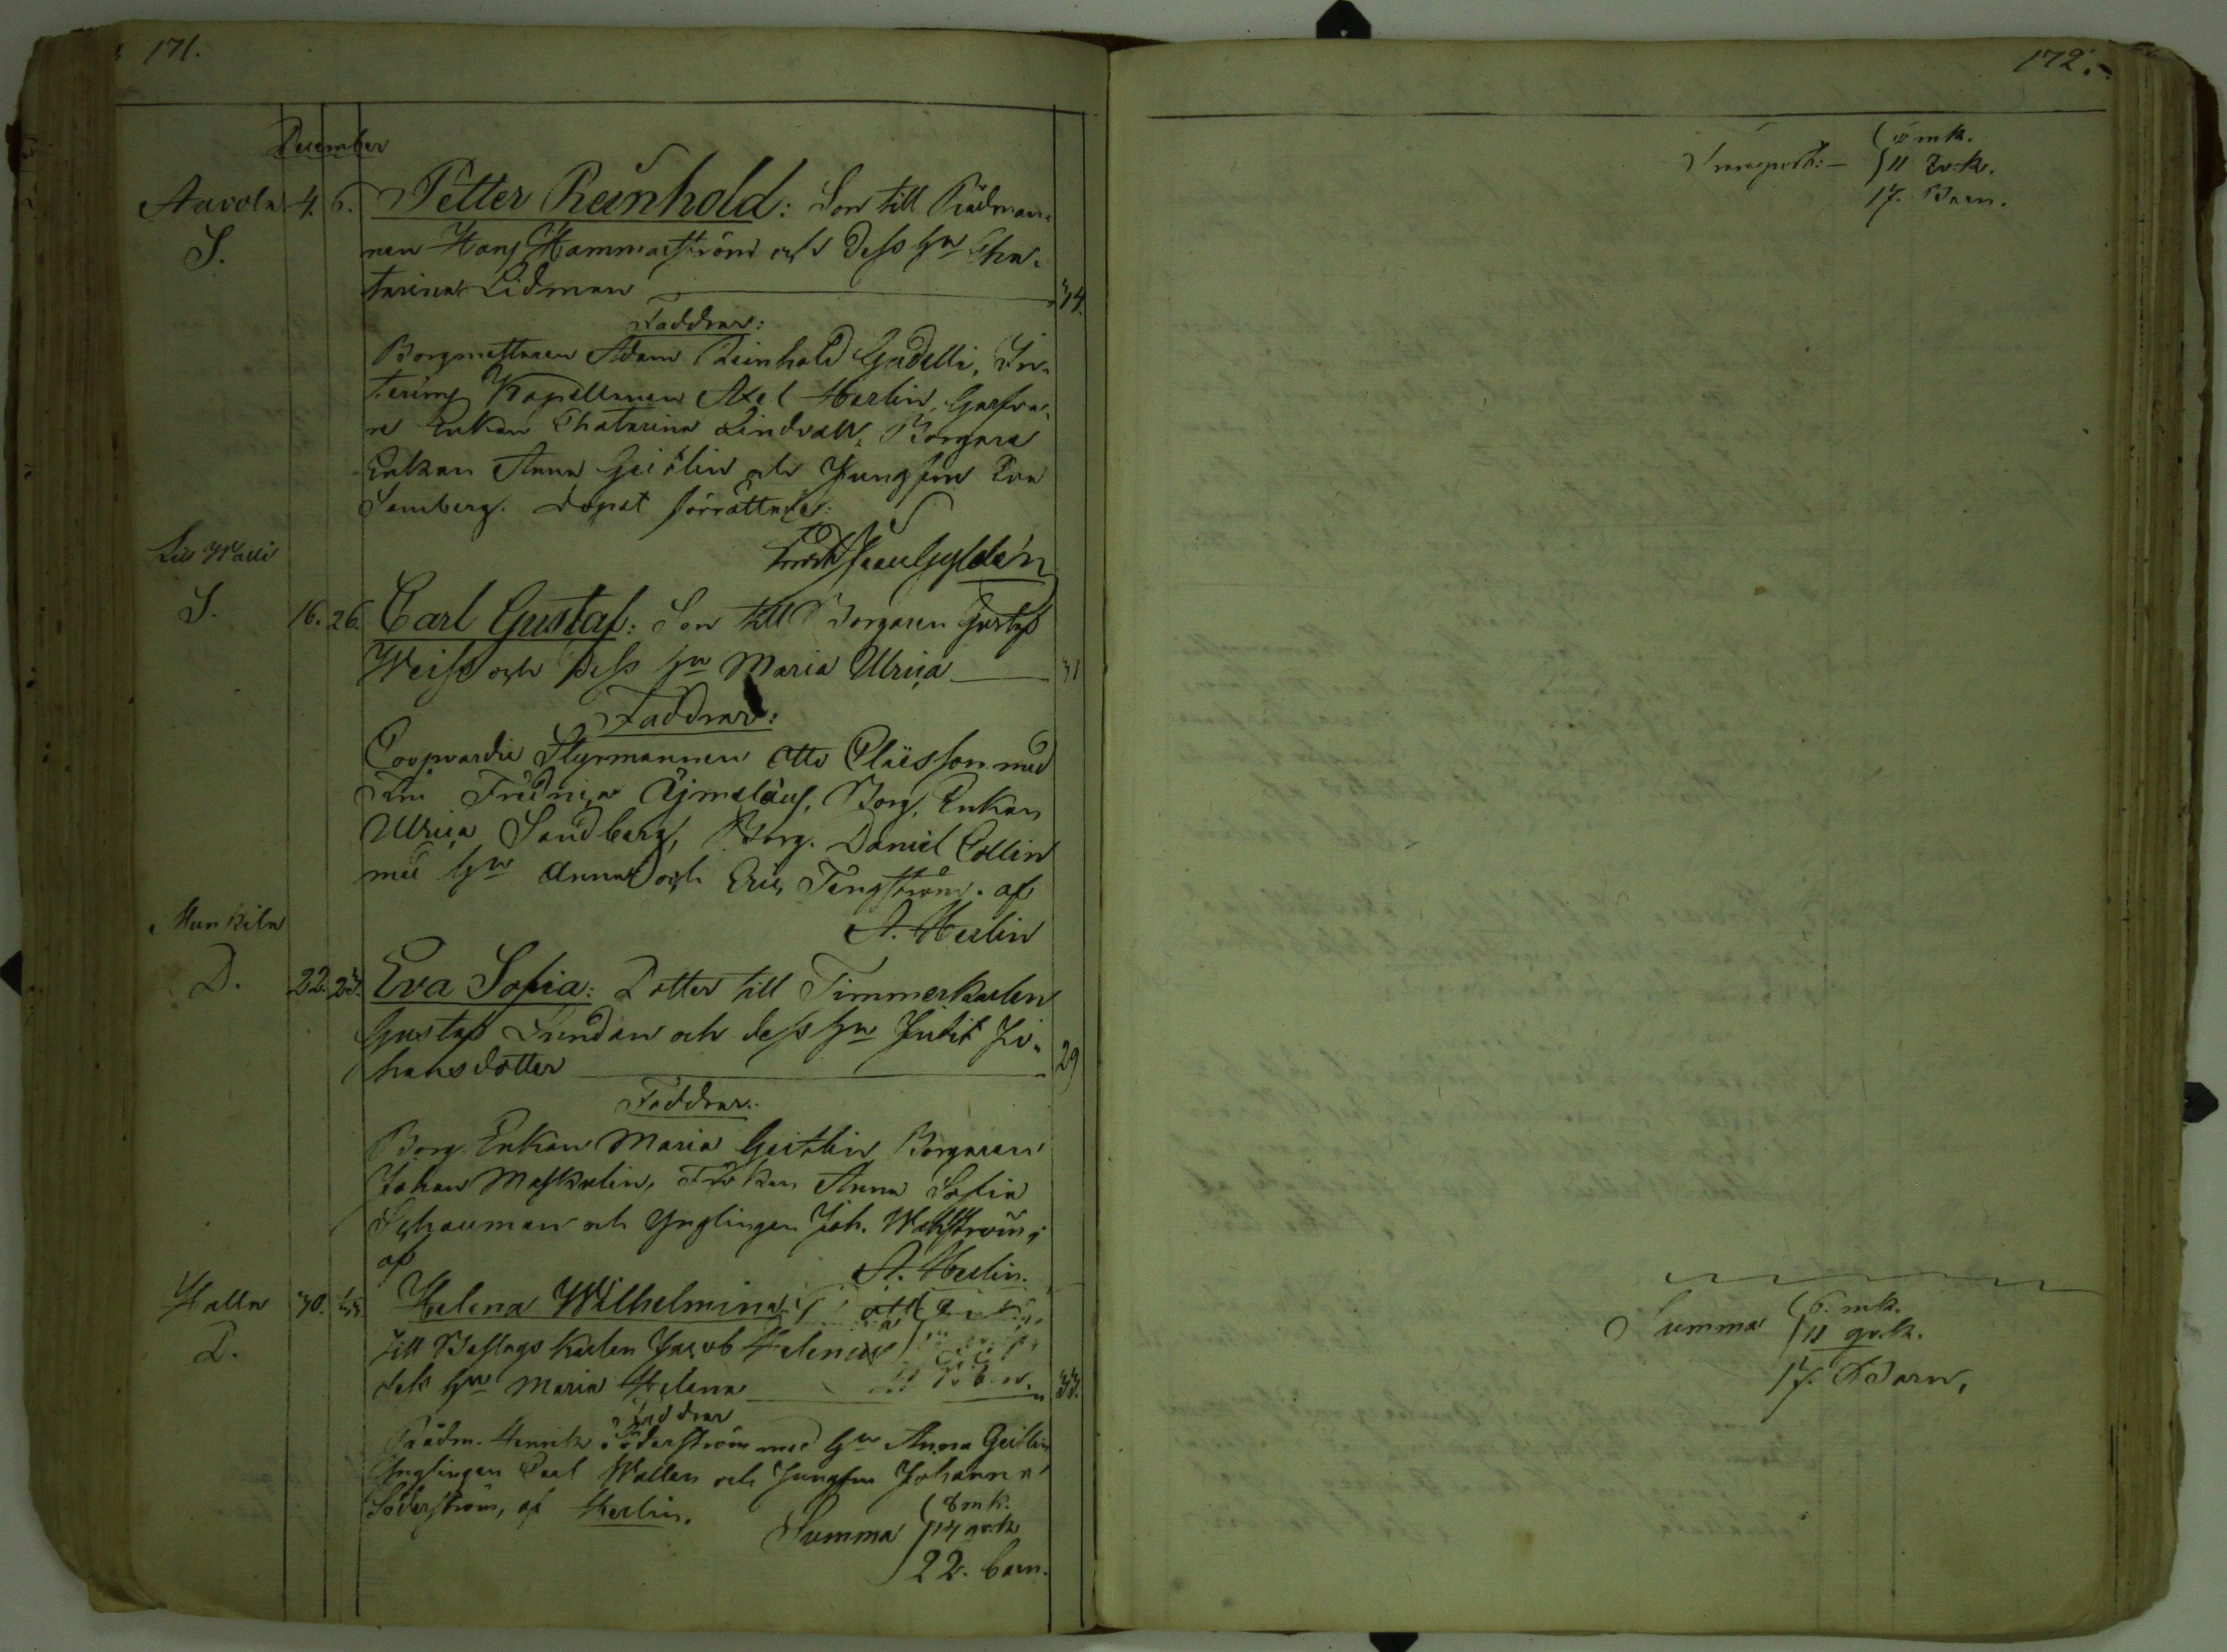 171.
December
4. 6. Petter Reinhold: Son till Rådman-
nen Hans Hammarström och dess Hu Cha-
tarina Lidman 34.
S.
Faddrar:
Borgmästaren Adam Reinhold Gadelli, In-
terims Kapellanen Axel Herlin, Garfva-
re Enkan Chatarina Lindvall, Borgare
Enkan Anna Geitlin och Jungfrun Eva
Samberg. Dopet förrättades:
Gyldén
Lill
S. 16. 26. Carl Gustaf: Son till Borgaren Gustaf
Weiss och dess Hu Maria Ulrica 31
Faddrar:
Coopvardie Styrmannen Otto Claësson med
Fru Fredrica Ajmelæus, Borg. Enkan
Ulrica Sandberg, Borg. Daniel Collin
med Hu Anna och Eric Tengström. af
A. Herlin
Munkila
D. 22. 27. Eva Sofia: Dotter till Timmerkarlen
Gustaf Sundan och dess Hu Judit Jo-
hansdotter 29
Faddrar:
Borg. Enkan Maria Geitlin Borgaren
Johan Maskalin, Fröken Anna Sofia
Schauman och Ynglingen Joh. Wahlström,
af
A. Herlin.
Halla 30. Helena Wilhelmina
D. till Beslags Karlen Jacob Helenius
dess Hu Maria Helena 33.
Faddrar
Rådm. Henrik Söderström med Hu Anna Geitlin
Ynglingen Carl Wallen och Jungfru Johanna
Söderström, af Herlin.
Summa 8 mk.
14 qv:k
22. barn.
172.
Transport:— 6 mk.
11 qv:k.
17. Barn.
Summa 6. mk.
11 qv:k.
17. Barn.